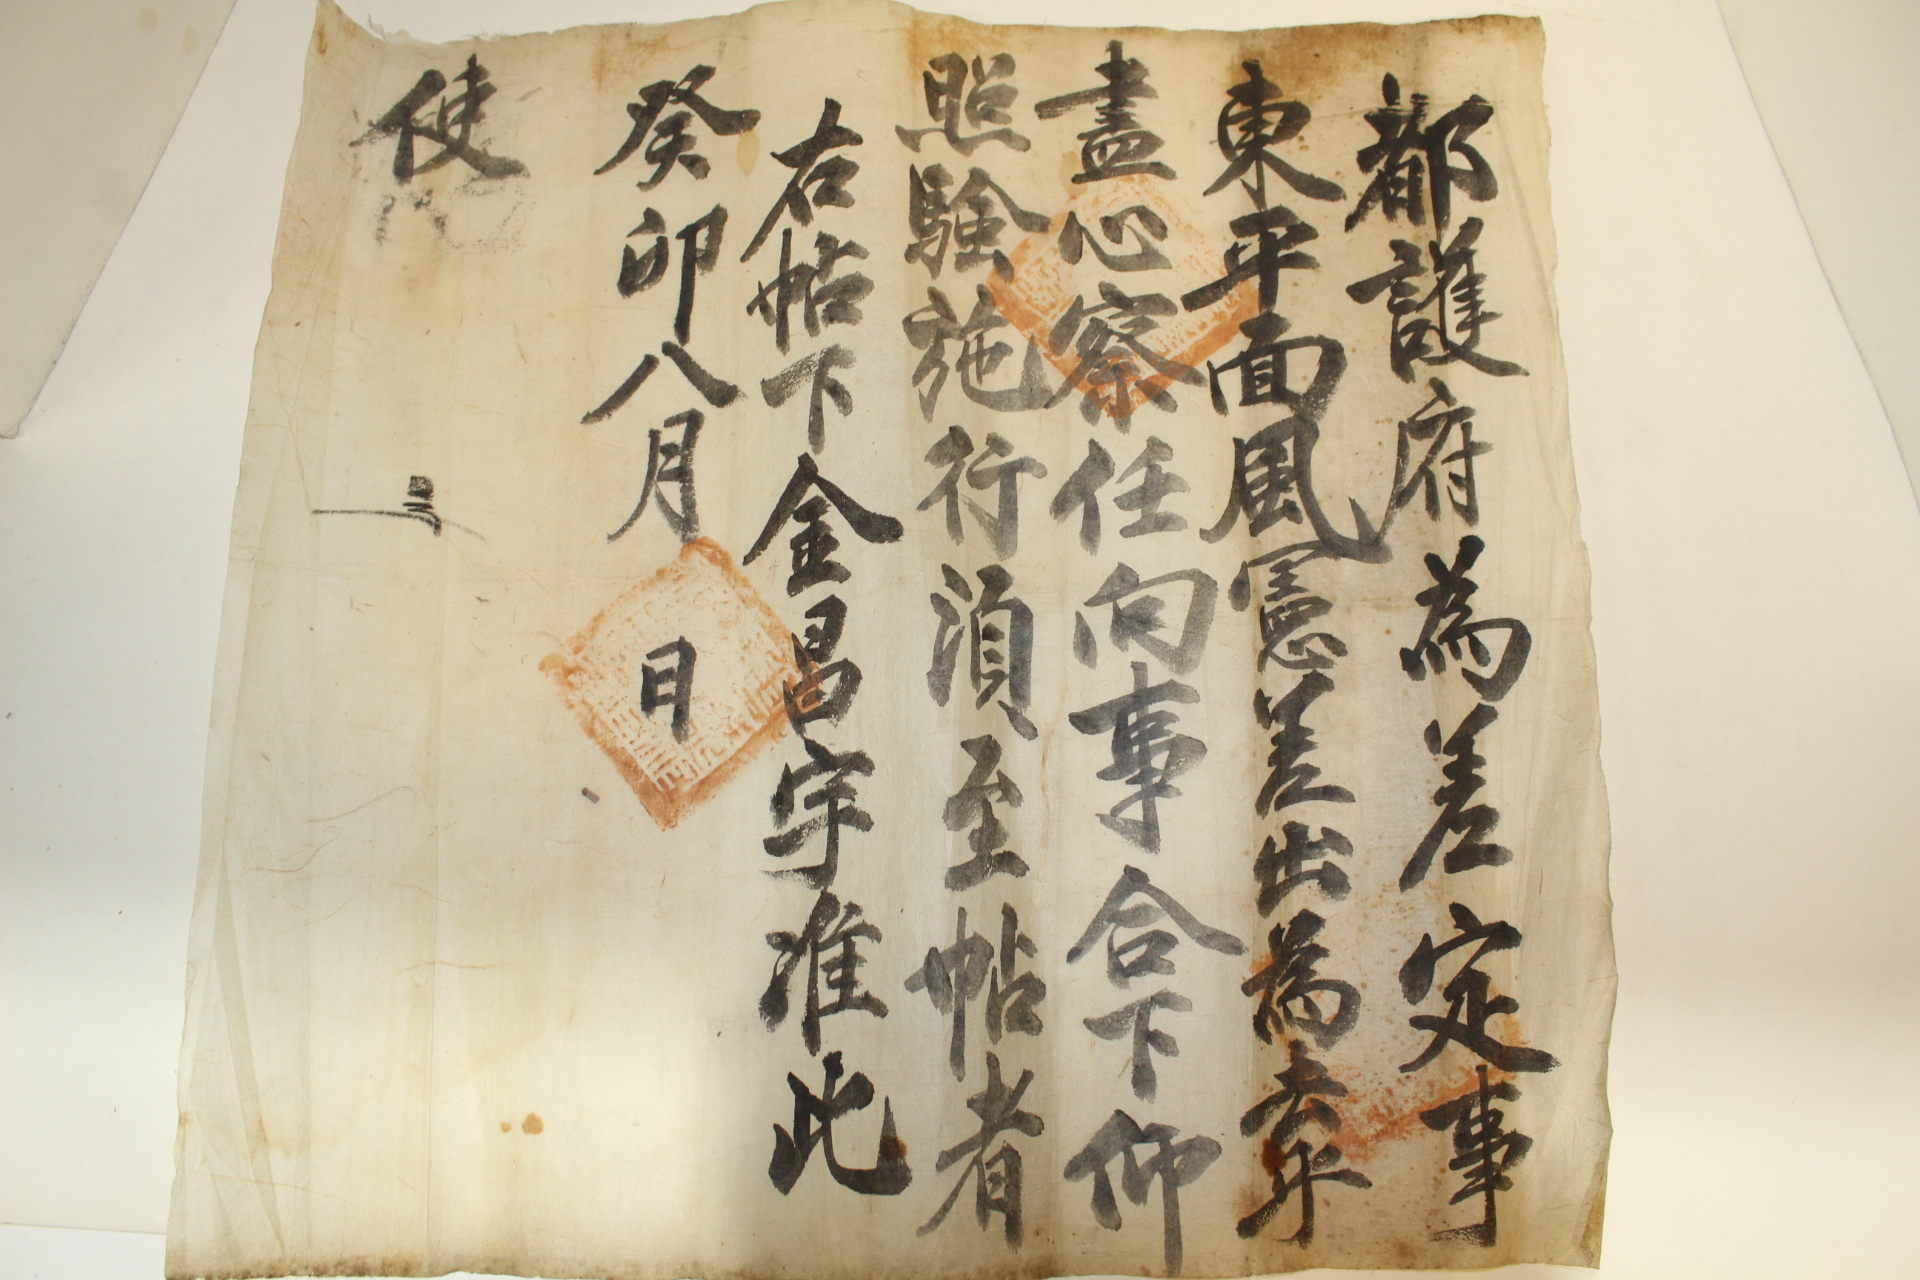 都護府為差定事
東平面風憲差出為去乎
盡心察任向事合下仰
照驗施行須至帖者
右帖下金昌宇准此
癸卯八月 日
使